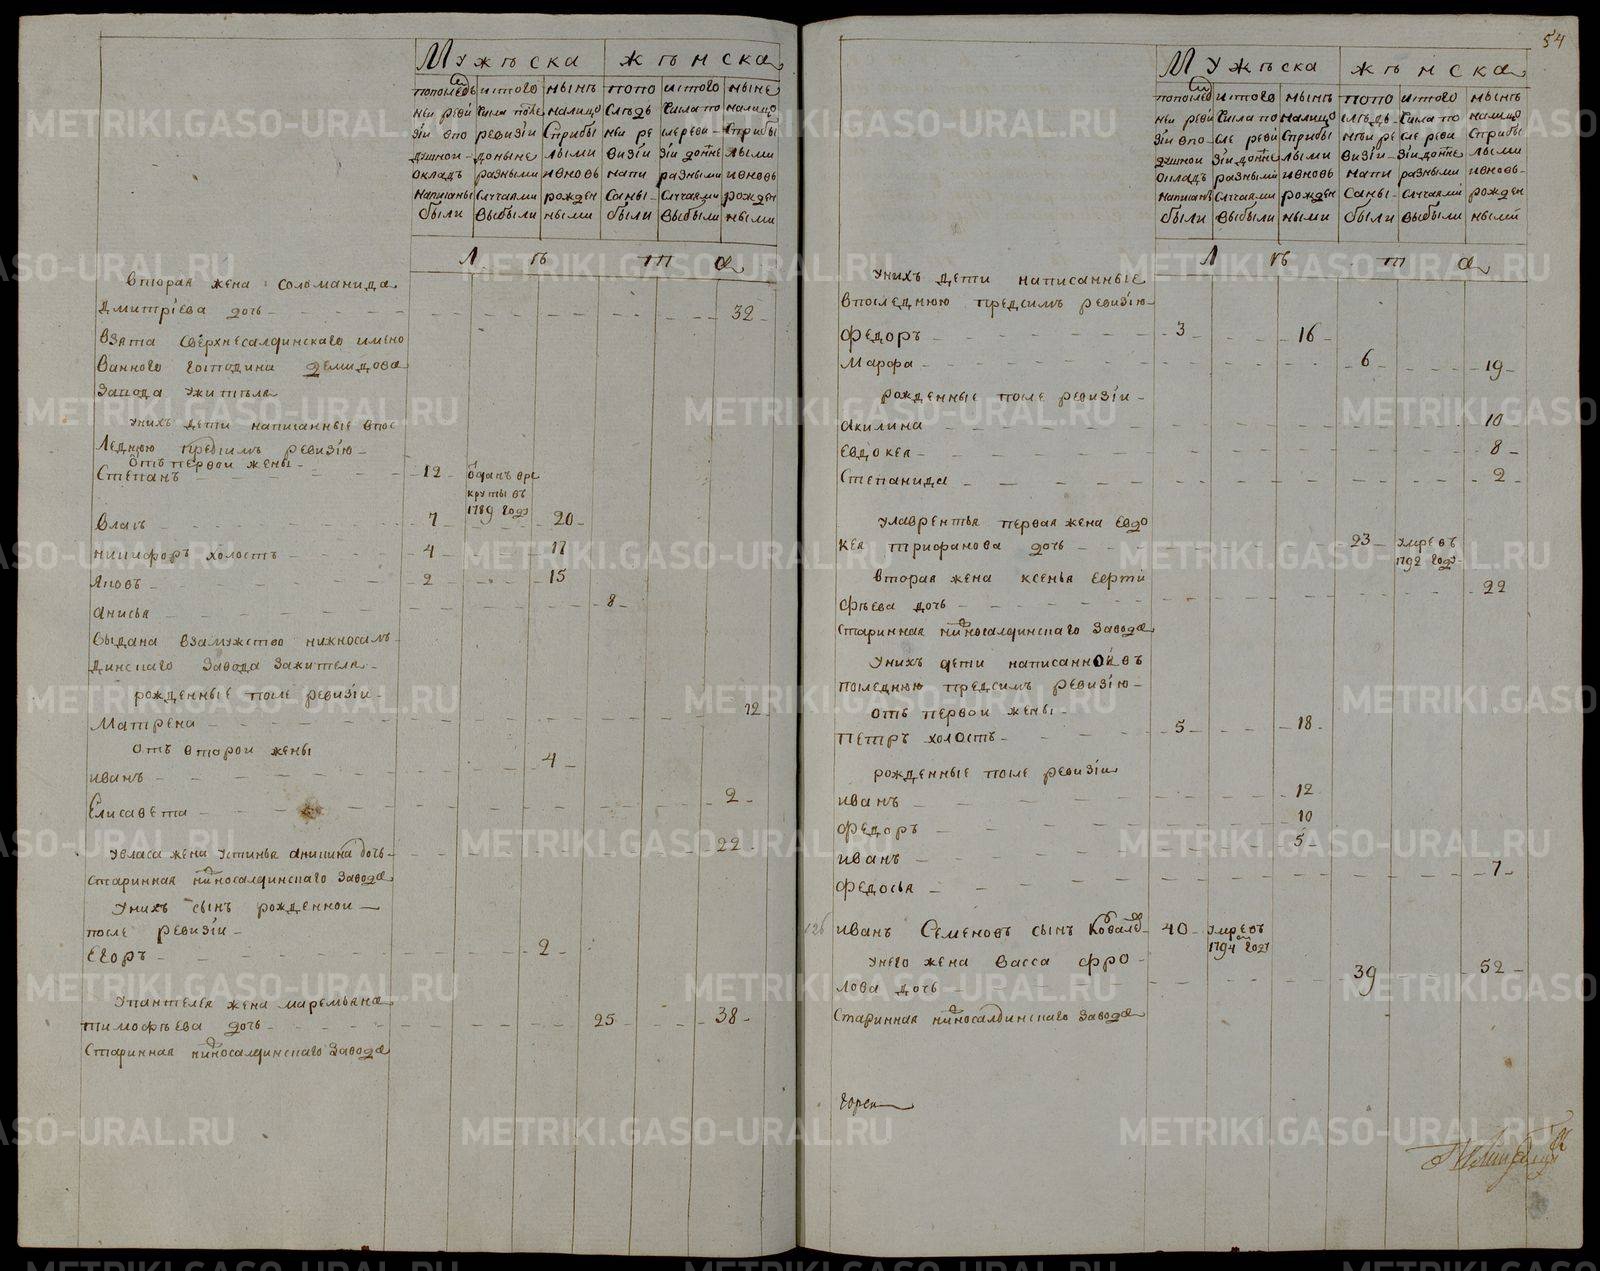 Мужеска женска
пополед ней реви зіи впо душной окладъ написаны были
изтого числа после ревизіи доныне разными случаями выбыли
нынѣ налицо сприбы лыми ивновь рожден ными
попо слѣдъ ней ре визіи напи саны были
изтого числа по слереви зіи доннѣ разными случаями выбыли
ныне налицо сприбы лыми ивновь рожден ными
Л ѣ т а
вторая жена соломанида
дмитріева дочь 32
взята сверхнесалдинскаго имено
ванного господина демидова
завода ужителя
унихъ дети написанные впос
леднюю предсимъ ревизію
отъ первои жены
Степанъ 12 отданъ вре
круты въ
1789 годо
власъ 7 20
никифоръ холостъ 4 17
Яковъ 2 15
анисья 8
выдана взамужство нижносалъ
динскаго завода зажителя
рожденные после ревизіи
Матрена 12
отъ второи жены
иванъ 4
Елисавета 2
увласа жена устинья аникина дочь 22
старинная нижносалдинскаго завода
Унихъ сынъ рожденнои
после ревизіи
Егоръ 2
Упантелея жена маремьяна
тимофѣева дочь 25 38
Старинная нижносалдинскаго завода
54
Мужеска женска
пополед ней реви зіи впо душной окладъ написаны были
изтого числа по сле реви зіи доннѣ разными случаями выбыли
нынѣ налицо сприбы лыми ивновь рожден ными
попо слѣдъ нѣи ре визіи напи саны были
изтого числа по сле реви зіи доннѣ разными случаями выбыли
нынѣ налицо сприбы лыми ивновь рожден ными
Л ѣ т а
Унихъ дети написанные
впоследнюю предсимъ ревизію
федоръ 3 16
Марфа 6 19
рожденные после ревизіи
акилина 10
Евдокея 8
Степанида 2
улаврентья первая жена Евдо
кея трифанова дочь 23 умре въ
1792 годо
вторая жена ксенья Еерти
фѣева дочь 22
старинная нижносалдинскаго завода
Унихъ дети написанной въ
последнюю предсимъ ревизію
отъ первои жены
Петръ холостъ 5 18
рожденные после ревизіи
иванъ 12
федоръ 10
иванъ 5
федосья 7
126 иванъ Семеновъ сынъ ковалев 40 умре въ
1794 годо
унего жена васса фро
лова дочь 39 52
Старинная нижносалдинскаго завода
METRIKI.GASO-URAL.RU